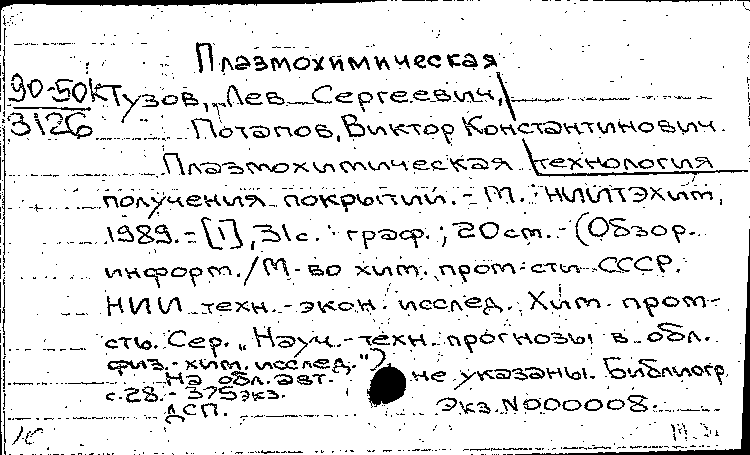 Плазмохимическая
90-50К Тузов, Лев Сергеевич,
3126 Потапов, Виктор Константинович.
Плазмохимическая технология
получения покрытий. - М.: НИИТЭХим,
1989. - [1], 31с. : граф. ; 20см. - (Обзор.
информ. / М-во хим. пром-сти СССР.
НИИ техн.-экон. исслед. Хим. пром-
сть. Сер. „Науч.-техн. прогнозы в обл.
физ.-хим. исслед.")
На обл. авт. не указаны. Библиогр.
с.28. - 375экз.
ДСП. Экз.N000008.